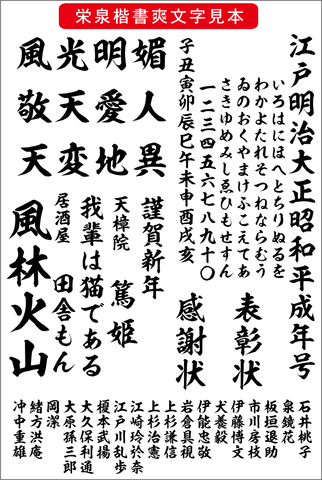 栄泉楷書爽文字見本
江戸明治大正昭和平成年号
いろはにほへとちりぬるを
わかよたれそつねならむう
ゐのおくやまけふこえてあ
さきゆめみしゑひもせすん
一二三四五六七八九十〇
子丑寅卯辰巳午未申酉戌亥
媚人異
明愛地
光天変
風敬天
表彰状
感謝状
謹賀新年
天樟院
篤姫
我輩は猫である
居酒屋
田舎もん
風林火山
石井桃子
泉鏡花
板垣退助
市川房枝
伊藤博文
犬養毅
伊能忠敬
岩倉具視
上杉謙信
上杉治憲
江崎玲於奈
江戸川乱歩
榎本武揚
大久保利通
大原孫三郎
岡潔
緒方洪庵
沖中重雄